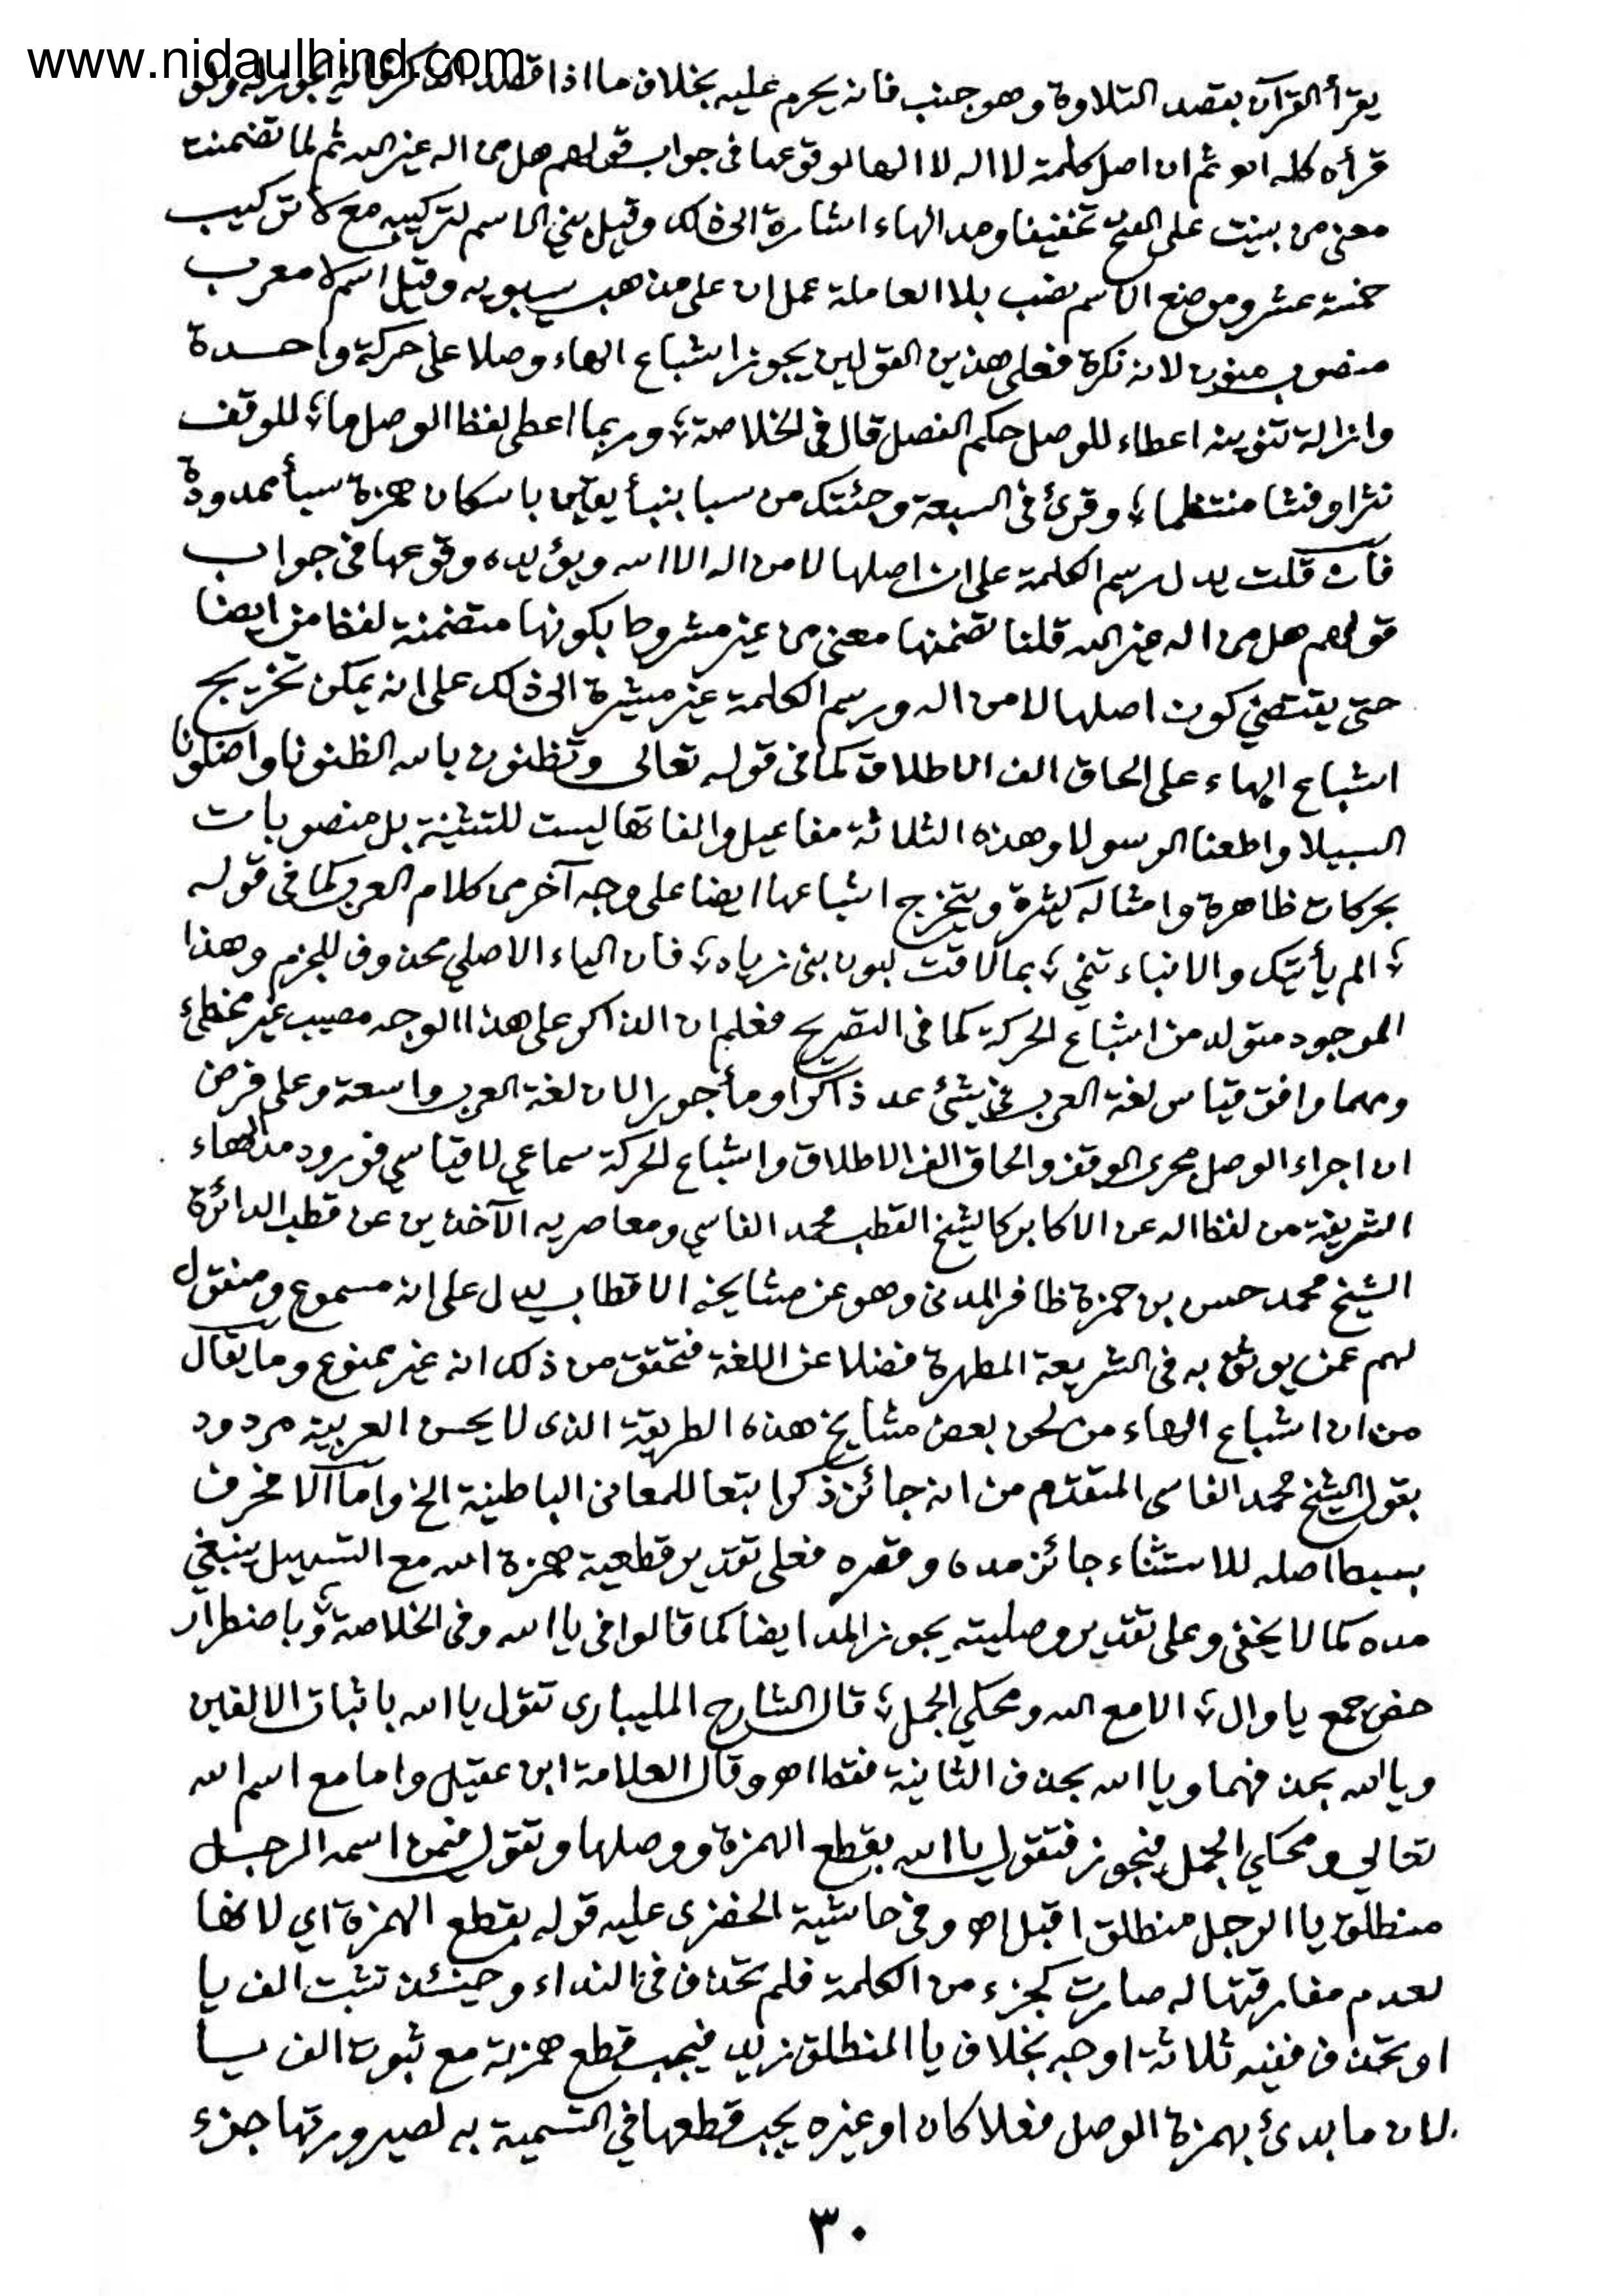 www.nidaulhind.com
يقرأ القرآن بقصد التلاوة وهو جنب فانه يحرم عليه بخلاف ما اذا قصد الذكر فانه يجوز له ولو
قرأه كله اهو ثم ان اصل كلمة لا اله لا الها لوقوعها فى جواب قولهم هل من اله غير الله ثم لما تضمنت
معنى من بينت على الفتح تخفيفا ومد الهاء اشارة الى ذلك وقيل بني الاسم لتركيبه مع لا تركيب
خمسة عشر وموضع الاسم نصب بلا العاملة عمل ان على مذهب سيبويه وقيل اسم لا معرب
منصوب منون لانه نكرة فعلى هذين القولين يجوز اشباع الهاء وصلا على حركة واحدة
وازالة تنوينه اعطاء للوصل حكم الفصل قال فى الخلاصة ؛ وربما اعطى لفظ الوصل ما ؛ للوقف
نثرا وفشا منتظما ؛ وقرئ فى السبعة وجئتك من سبا بنبأ يقين باسكان همزة سبأ ممدودة
فان قلت يدل رسم الكلمة على ان اصلها لا من اله الا الله ويؤيده وقوعها فى جواب
قولهم هل من اله غير الله قلنا تضمنها معنى من غير مشروط بكونها متضمنة لفظ من ايضا
حتى يقتضي كون اصلها لا من اله ورسم الكلمة غير مشيرة الى ذلك على انه يمكن تخريج
اشباع الهاء على الحاق الف الاطلاق كما فى قوله تعالى وتظنون بالله الظنونا واضلونا
السبيلا واطعنا الرسولا وهذه الثلاثة مفاعيل والفاتها ليست للتثنية بل منصوبات
بحركات ظاهرة وامثاله كثيرة ويتخرج اشباعها ايضا على وجه آخر من كلام العرب كما فى قوله
؛ الم يأتيك والانباء تنمي ؛ بما لاقت لبون بنى زياد ؛ فان الياء الاصلي محذوف للجزم وهذا
الموجود متولد من اشباع الحركة كما فى التصريح فعلم ان الذاكر على هذا الوجه مصيب غير مخطئ
ومهما وافق قياس لغة العرب فى شئ عد ذاكرا ومأجورا لان لغة العرب واسعة وعلى فرض
ان اجراء الوصل مجرى الوقف والحاق الف الاطلاق واشباع الحركة سماعي لا قياسي فورود مد الهاء
الشريفة من لفظ اله عن الاكابر كالشيخ القطب محمد الفاسي ومعاصريه الآخذين عن قطب الدائرة
الشيخ محمد حسن بن حمزة ظافر المدنى وهو عن مشايخه الاقطاب يدل على انه مسموع ومنقول
لهم عمن يوثق به فى الشريعة المطهرة فضلا عن اللغة فتحقق من ذلك انه غير ممنوع وما يقال
من ان اشباع الهاء من لحن بعض مشايخ هذه الطريقة الذى لا يحسن العربية مردود
بقول الشيخ محمد الفاسى المتقدم من انه جائز ذكرا بتعا للمعانى الباطنية الخ واما آلا فحرف
بسيط اصله للاستثناء جائز مده وقصره فعلى تقدير قطعية همزة الله مع التسهيل ينبغي
مده كما لا يخفى وعلى تقدير وصليته يجوز المد ايضا كما قالوا فى يا الله وفى الخلاصة ؛ وباضطرار
خص جمع يا وال ؛ الا مع الله ومحكي الجمل ؛ قال الشارح المليبارى تقول يا الله باثبات الالفين
ويالله بحذفهما ويا الله بحذف الثانية فقط اهو وقال العلامة ابن عقيل واما مع اسم الله
تعالى ومحكي الجمل فيجوز فتقول يا الله بقطع الهمزة ووصلها وتقول فيمن اسمه الرجل
منطلق يا الرجل منطلق اقبل اهو وفى حاشية الخضرى عليه قوله بقطع الهمزة اي لانها
لعدم مفارقتها له صارت كجزء من الكلمة فلم تحذف فى النداء وحينئذ تثبت الف يا
او تحذف ففيه ثلاثة اوجه بخلاف يا المنطلق زيد فيجب قطع همزته مع ثبوت الف يا
لان ما بدئ بهمزة الوصل فعلا كان او غيره يجب قطعها فى التسمية به لصيرورتها جزء
٣٠